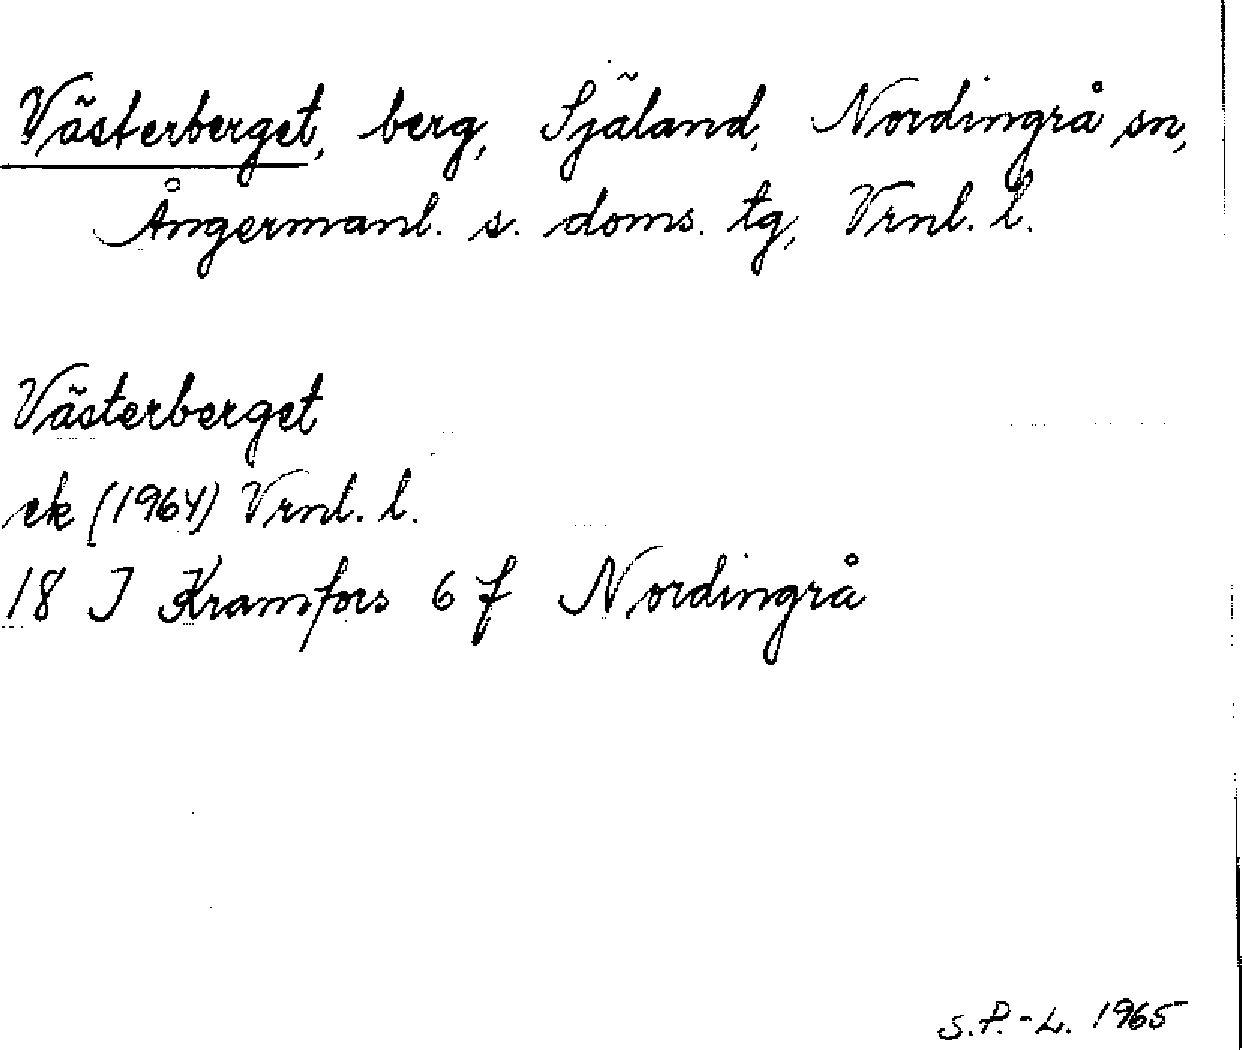 Västerberget, berg, Själand, Nordingrå sn,
Ångermanl. s. doms. tg, Vrnl. l.
Västerberget
ek (1964) Vrnl. l.
18 I Kramfors 6 f Nordingrå
S.P.-L. 1965